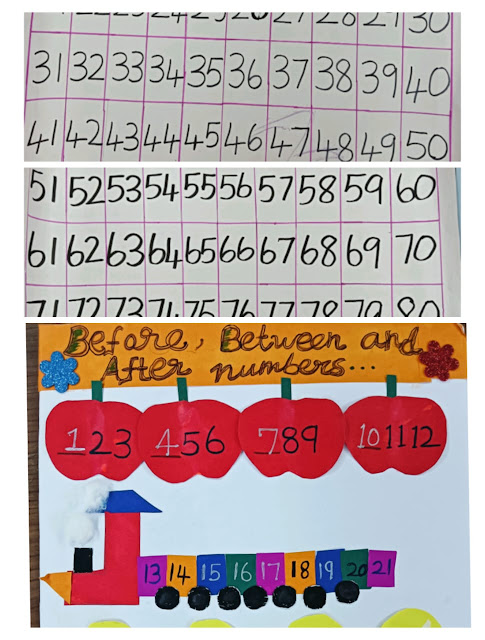 27 28 29 30
31 32 33 34 35 36 37 38 39 40
41 42 43 44 45 46 47 48 49 50
51 52 53 54 55 56 57 58 59 60
61 62 63 64 65 66 67 68 69 70
71 72 73 74 75 76 77 78 79 80
Before, Between and
After numbers...
1 2 3 4 5 6 7 8 9 10 11 12
13 14 15 16 17 18 19 20 21